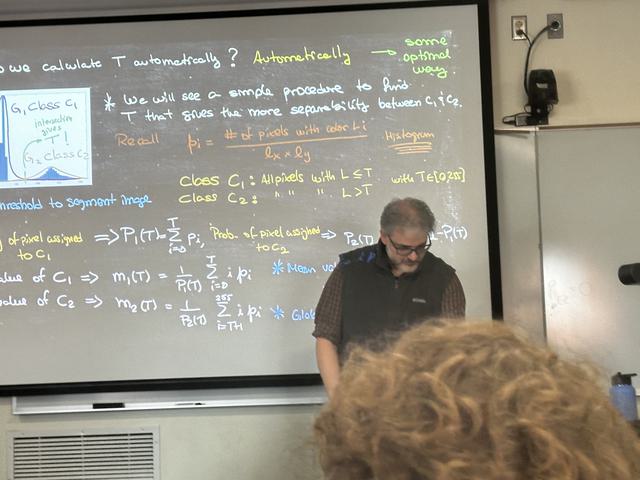 we calculate T automatically? Automatically → some optimal way.
G1 Class C1
intersection gives
T!
G2 Class C2
* We will see a simple procedure to find
T that gives the more separability between C1 & C2.
Recall pi = # of pixels with color Li / lx × ly Histogram
Class C1: All pixels with L ≤ T with T∈[0,255]
Class C2: " " " L > T
threshold to segment image
of pixel assigned to C1 => P1(T) = Σ_{i=0}^{T} pi, Prob. of pixel assigned to C2 => P2(T) 1-P1(T)
value of C1 => m1(T) = 1/P1(T) Σ_{i=0}^{T} i pi * Mean
value of C2 => m2(T) = 1/P2(T) Σ_{i=T+1}^{255} i pi *